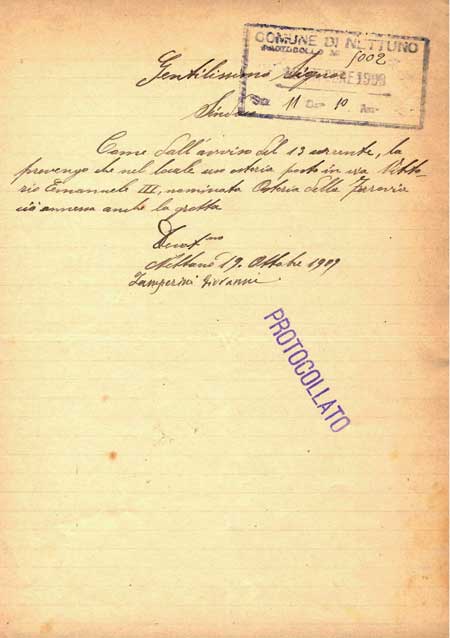 COMUNE DI NETTUNO
PROTOCOLLO N° 5002
OTTOBRE 1909
11 10
Gentilissimo Signor
Sindaco
Come dall'avviso del 13 corrente, la
prevengo che nel locale uso osteria posto in via Vitto-
rio Emanuele III, nominata Osteria della Ferrovia
ci è annessa anche la grotta
Nettuno 19. Ottobre 1909
Zamperini Giovanni
PROTOCOLLATO